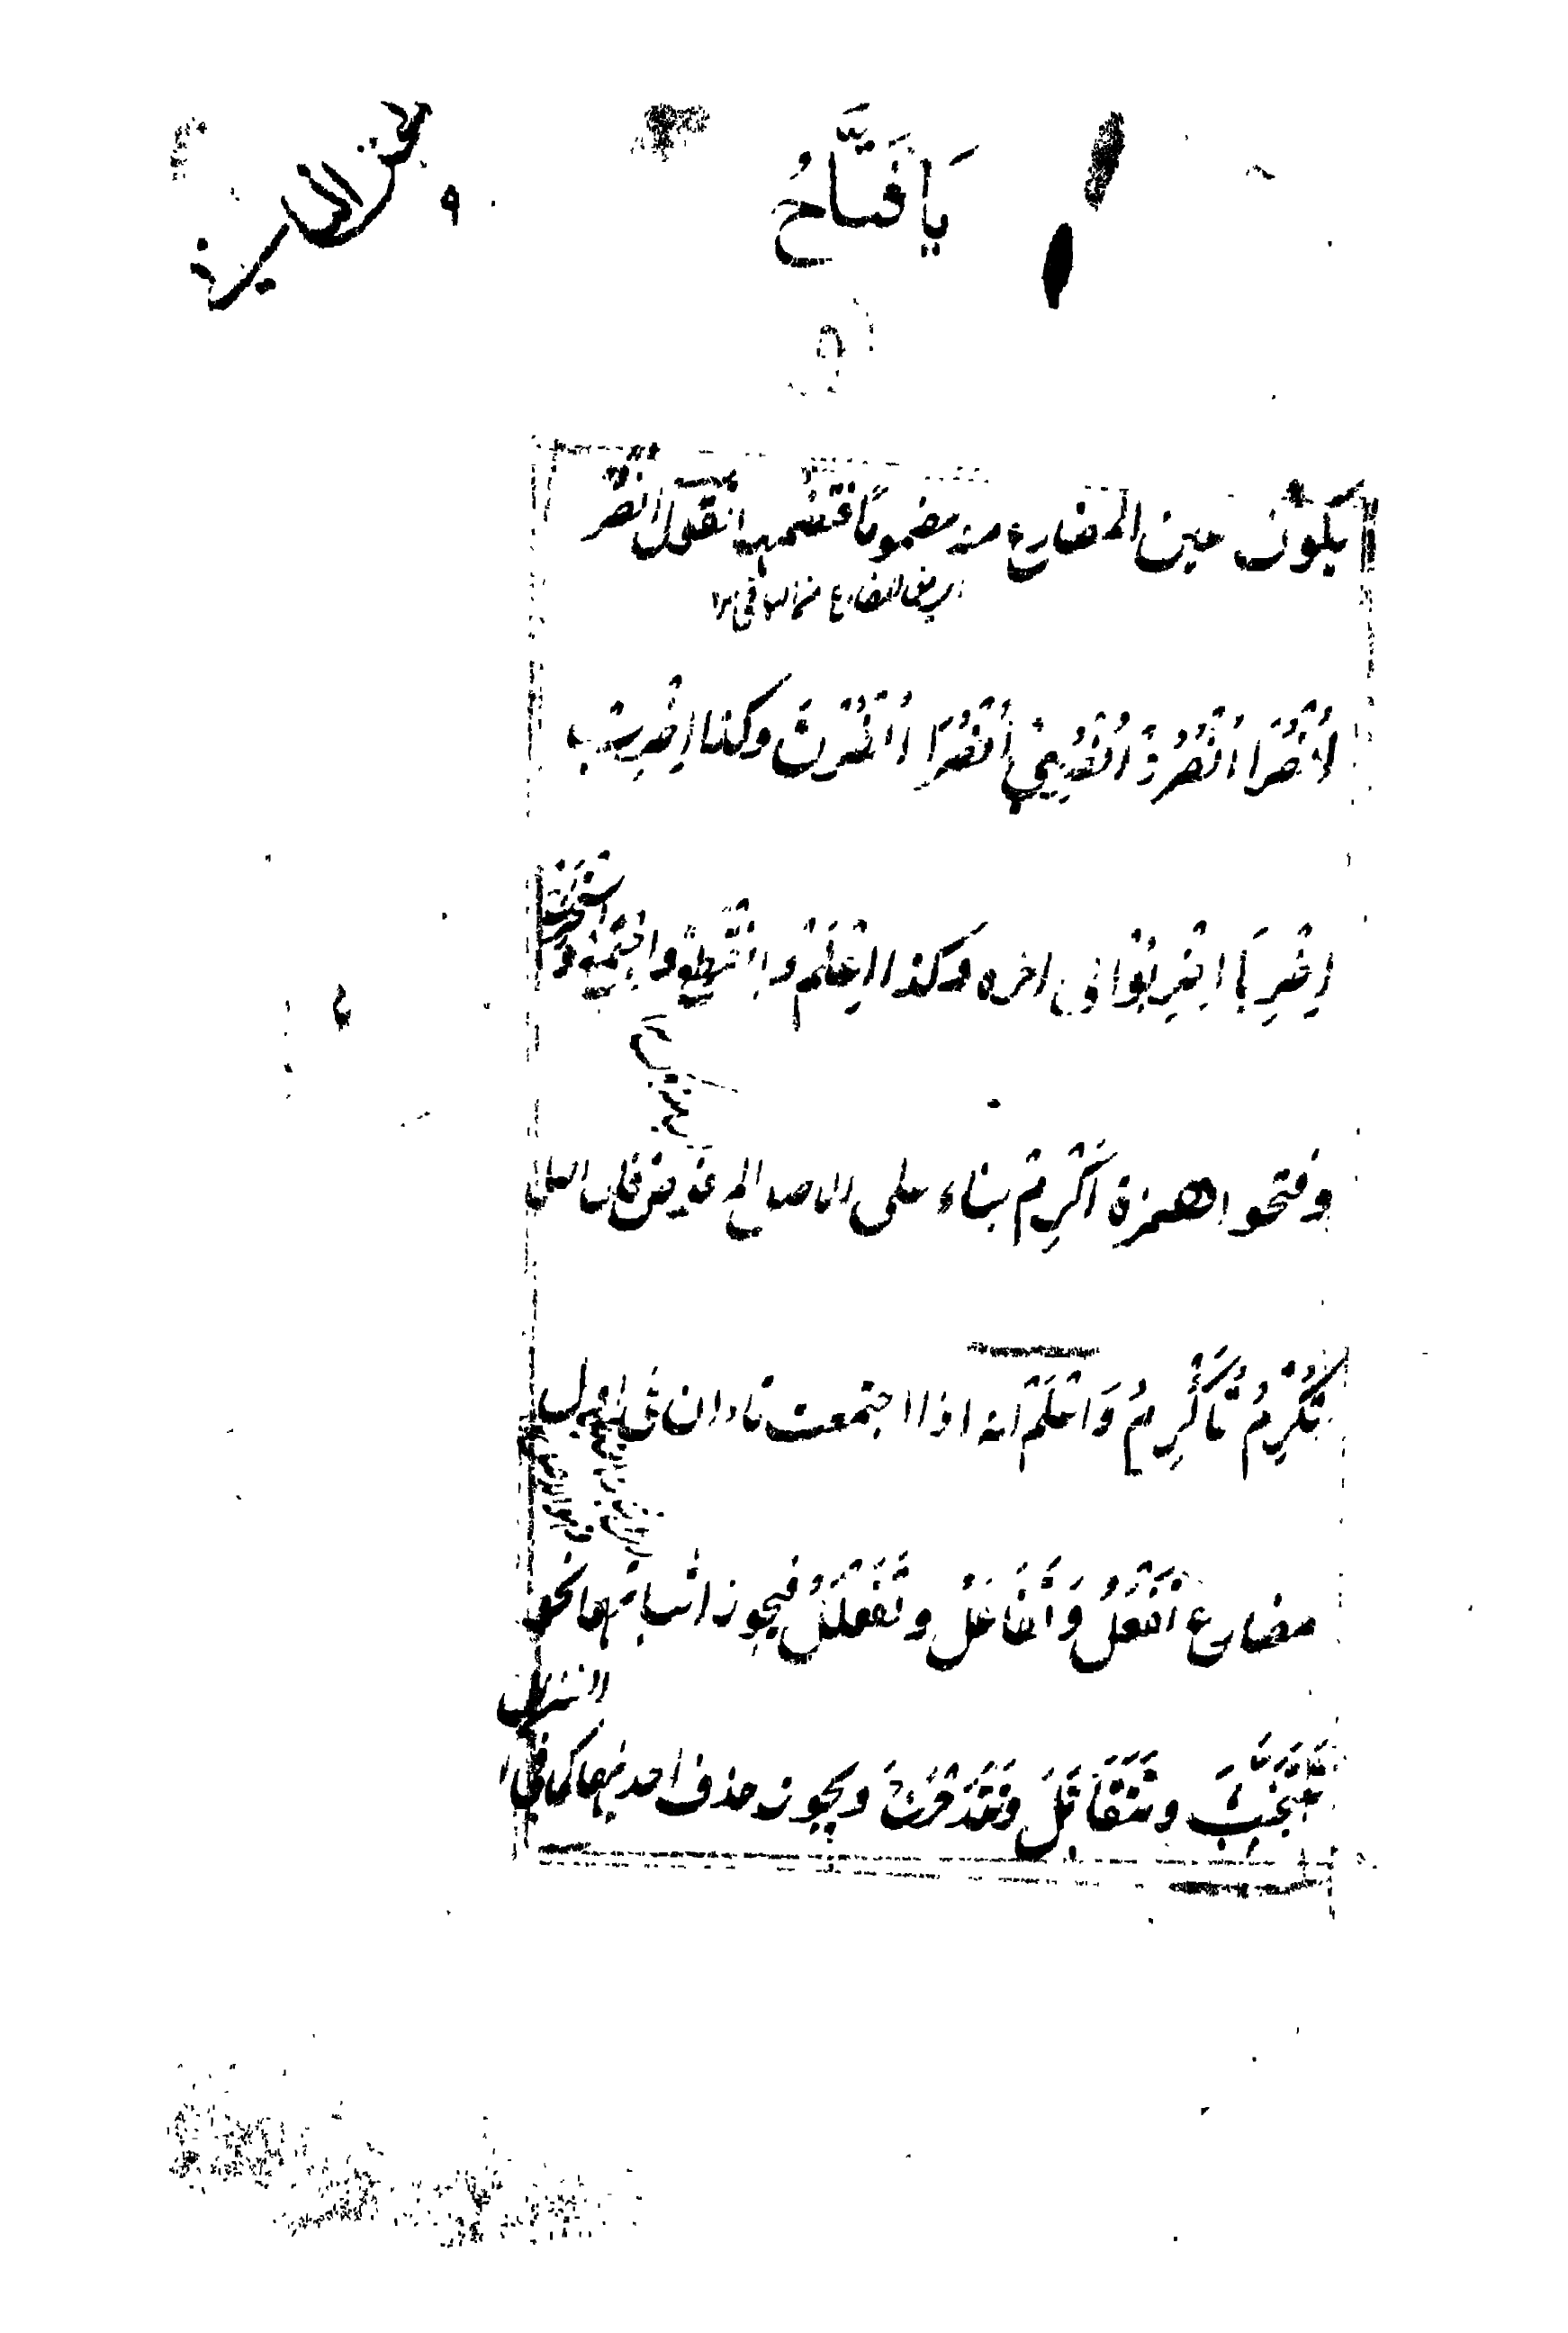 يَا فَتَّاحُ
٩
يكون عين المضارع منه مضموماً فتضمها تقول اُنْصُرْ
اُنْصُرَا اُنْصُرُوْ اُنْصُرِيْ اُنْصُرَا اُنْصُرْنَ وكذا اِضْرِبْ
اِضْرِبَا اِضْرِبُوْا الى اخره وكذا اِعْلَمْ وَاِنْقَطِعْ وَاجْتَمِعْ وَ
اسْتَخْرِجْ
وفتحوا همزة اَكْرِمْ بناء على الاصل المرفوض فان اصل
تُكْرِمُ تُأَكْرِمُ وَاعْلَمْ انه اذا اجتمعت تاءان فى اول
مضارع تَفَعَّلَ وَتَفَاعَلَ وتَفَعْلَلَ فيجوز اثباتهما نحو
تَتَجَنَّبُ وتَتَقَاتَلُ وتَتَدَحْرَجُ ويجوز حذف احديهما كما في
التنزيل